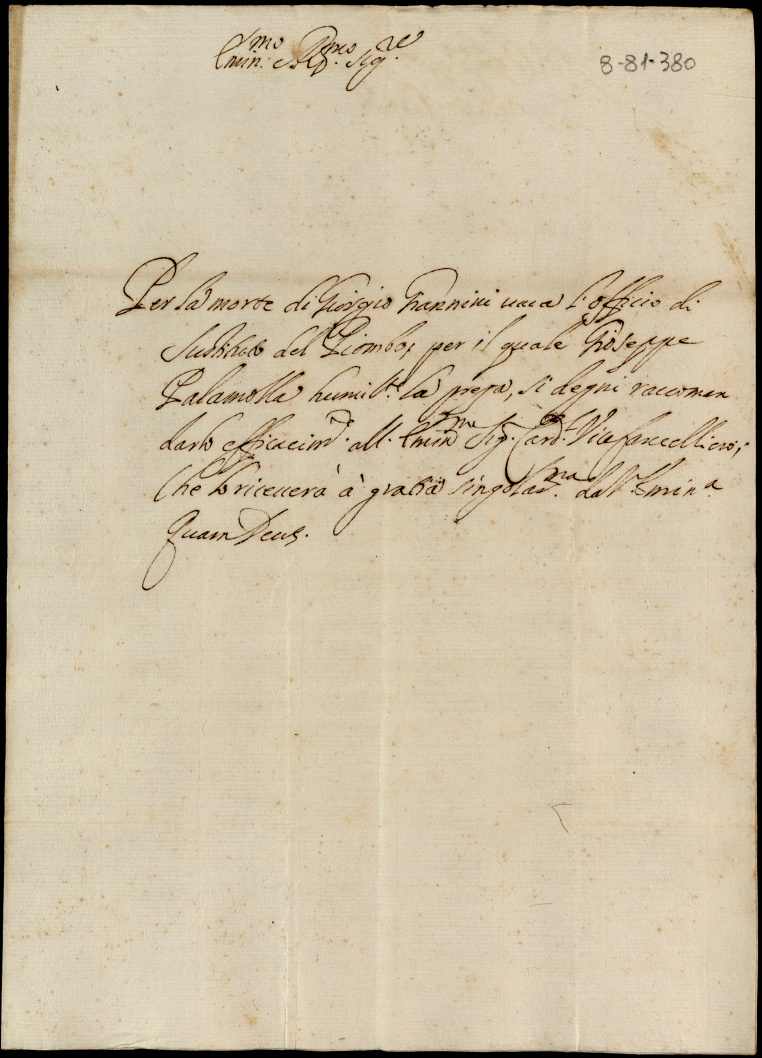 Emin:mo e R:mo Sig:re
8-81-380
Per la morte di Giorgio Giannini uaca l'officio di
sustituto del Piombo; per il quale Gioseppe
Palamolla humil:te la prega, si degni raccoman
darlo efficacim:te all' Emin:mo Sig: Card: Vicecancelliero;
che lo riceuerà à gratia singolar:ma dall' Emin:a
Quam Deus.